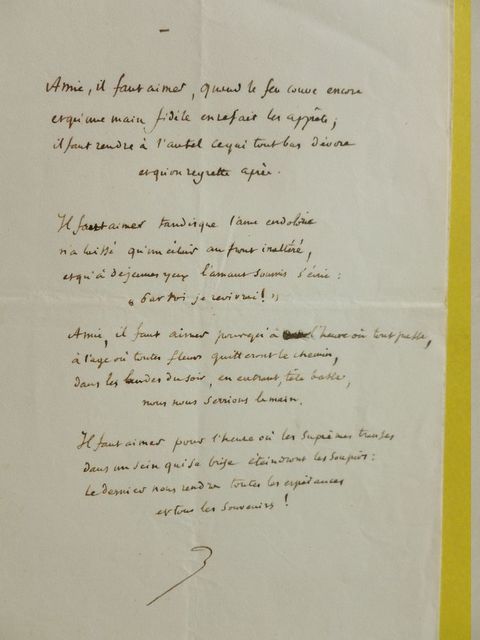 Amie, il faut aimer, quand le feu couve encore
et qu'une main fidèle en refait les apprêts ;
il faut rendre à l'autel ce qui tout bas dévore
et qu'on regrette après.
Il faut aimer tandis que l'âme endolorie
n'a laissé qu'un éclair au front inaltéré,
et qu'à de jeunes yeux l'amant soumis s'écrie :
« Par toi je revivrai ! »
Amie, il faut aimer pour qu'à l'heure où tout passe,
à l'age où toutes fleurs quitteront le chemin,
dans les landes du soir, en entrant, tête basse,
nous nous serrions la main.
Il faut aimer pour l'heure où les suprêmes transes
dans un sein qui se brise éteindront les soupirs :
le dernier nous rendra toutes les espérances
et tous les souvenirs !